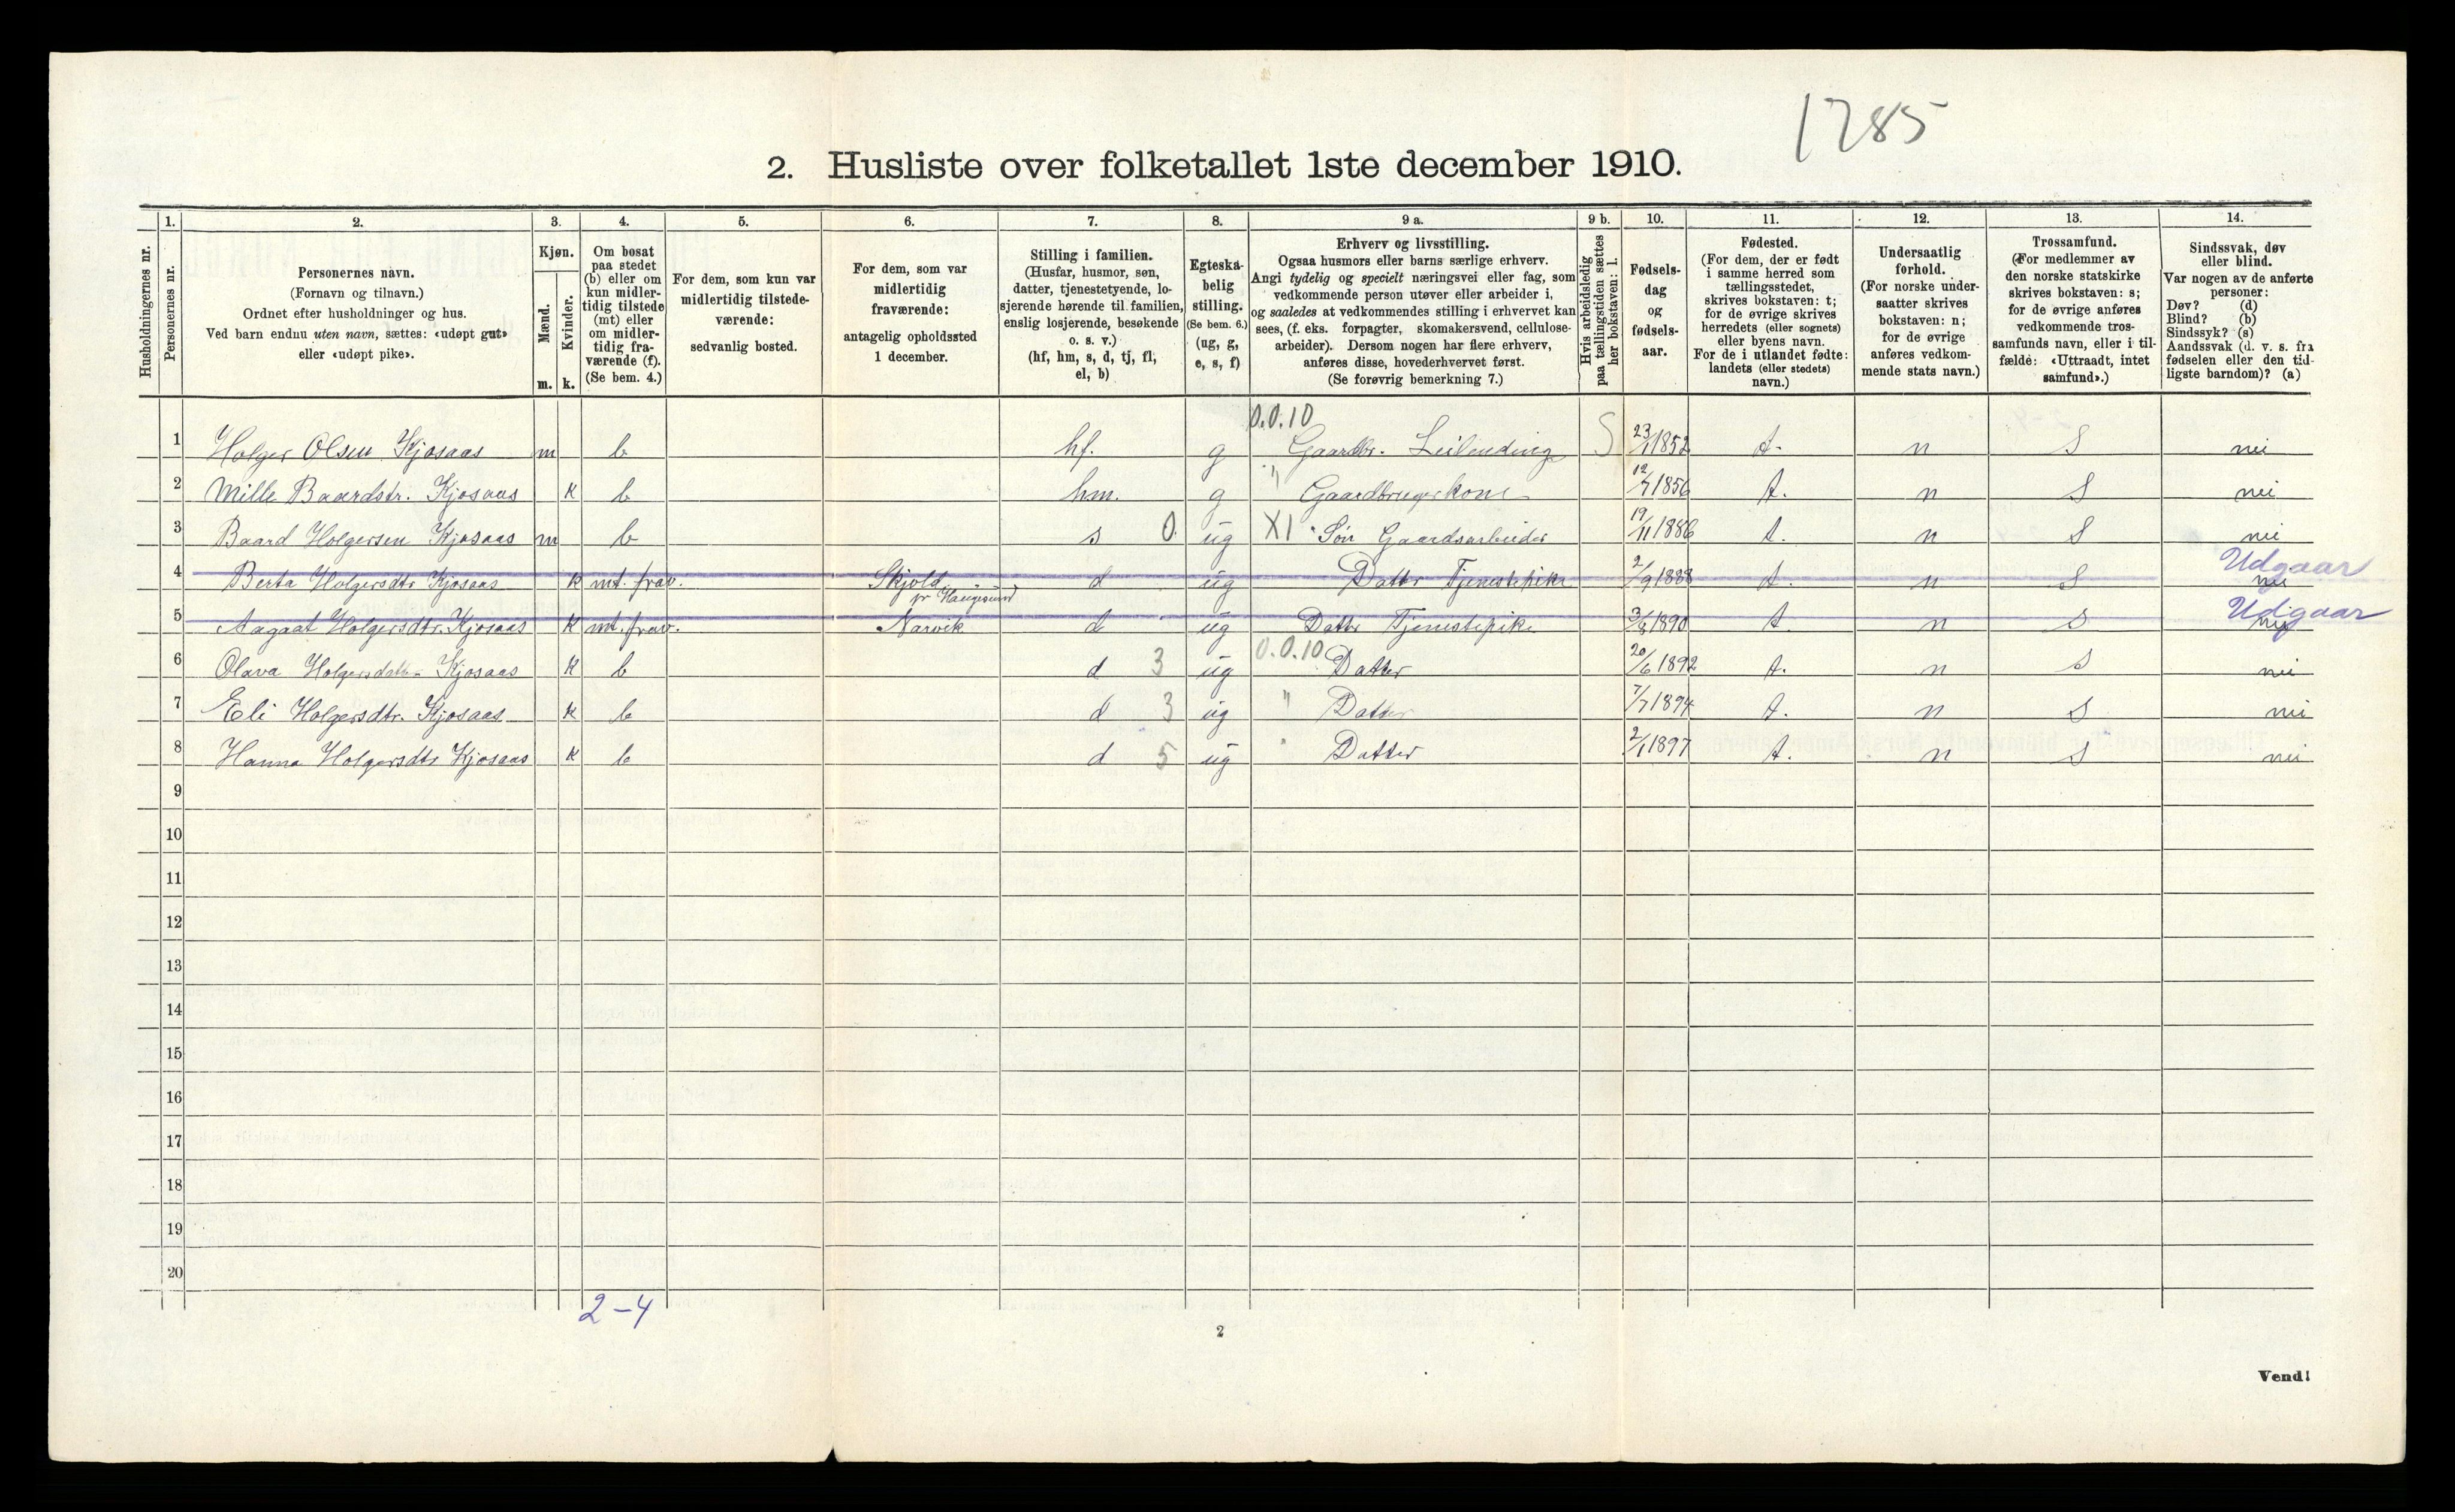 1285
2. Husliste over folketallet 1ste december 1910.
Husholdningernes nr.
1.
Personernes nr.
2.
Personernes navn.
(Fornavn og tilnavn.)
Ordnet efter husholdninger og hus.
Ved barn endnu uten navn, sættes: «udøpt gut»
eller «udøpt pike».
3.
Kjøn.
Mænd.
Kvinder.
m. k.
4.
Om bosat
paa stedet
(b) eller om
kun midler-
tidig tilstede
(mt) eller
om midler-
tidig fra-
værende (f).
(Se bem. 4.)
5.
For dem, som kun var
midlertidig tilstede-
værende:
sedvanlig bosted.
6.
For dem, som var
midlertidig
fraværende:
antagelig opholdssted
1 december.
7.
Stilling i familien.
(Husfar, husmor, søn,
datter, tjenestetyende, lo-
sjerende hørende til familien,
enslig losjerende, besøkende
o. s. v.)
(hf, hm, s, d, tj, fl,
el, b)
8.
Egteska-
belig
stilling.
(Se bem. 6.)
(ug, g,
e, s, f)
9 a.
Erhverv og livsstilling.
Ogsaa husmors eller barns særlige erhverv.
Angi tydelig og specielt næringsvei eller fag, som
vedkommende person utøver eller arbeider i,
og saaledes at vedkommendes stilling i erhvervet kan
sees, (f. eks. forpagter, skomakersvend, cellulose-
arbeider). Dersom nogen har flere erhverv,
anføres disse, hovederhvervet først.
(Se forøvrig bemerkning 7.)
9 b.
Hvis arbeidsledig
paa tællingstiden sættes
her bokstaven: l.
10.
Fødsels-
dag
og
fødsels-
aar.
11.
Fødested.
(For dem, der er født
i samme herred som
tællingsstedet,
skrives bokstaven: t;
for de øvrige skrives
herredets (eller sognets)
eller byens navn.
For de i utlandet fødte:
landets (eller stedets)
navn.)
12.
Undersaatlig
forhold.
(For norske under-
saatter skrives
bokstaven: n;
for de øvrige
anføres vedkom-
mende stats navn.)
13.
Trossamfund.
(For medlemmer av
den norske statskirke
skrives bokstaven: s;
for de øvrige anføres
vedkommende tros-
samfunds navn, eller i til-
fælde: «Uttraadt, intet
samfund».)
14.
Sindssvak, døv
eller blind.
Var nogen av de anførte
personer:
Døv? (d)
Blind? (b)
Sindssyk? (s)
Aandssvak (d. v. s. fra
fødselen eller den tid-
ligste barndom)? (a)
0.0.10
1 Holger Olsen Kjosaas m b hf. g Gaardbr. Leilending S 23/1 1852 t. n S nei
2 Mille Baardstr. Kjosaas k b hm. g " Gaardbrugerkone 12/7 1856 t. n S nei
3 Baard Holgersen Kjosaas m b s 0 ug X1 Søn Gaardsarbeider 19/11 1886 t. n S nei
4 Berta Holgersdtr Kjosaas k mt. frav. Skjold pr Haugesund d ug Datter Tjenestepike 2/9 1888 t. n S nei Udgaar
5 Aagaat Holgersdtr. Kjosaas k mt. frav. Narvik d ug Datter Tjenestepike 3/8 1890 t. n S nei Udgaar
6 Olava Holgersdatter Kjosaas k b d 3 ug 0.0.10 Datter 20/6 1892 t. n S nei
7 Eli Holgersdtr. Kjosaas k b d 3 ug " Datter 7/7 1894 t. n S nei
8 Hanna Holgersdtr Kjosaas k b d 5 ug " Datter 2/1 1897 t. n S nei
9
10
11
12
13
14
15
16
17
18
19
20
2-4
2
Vend!